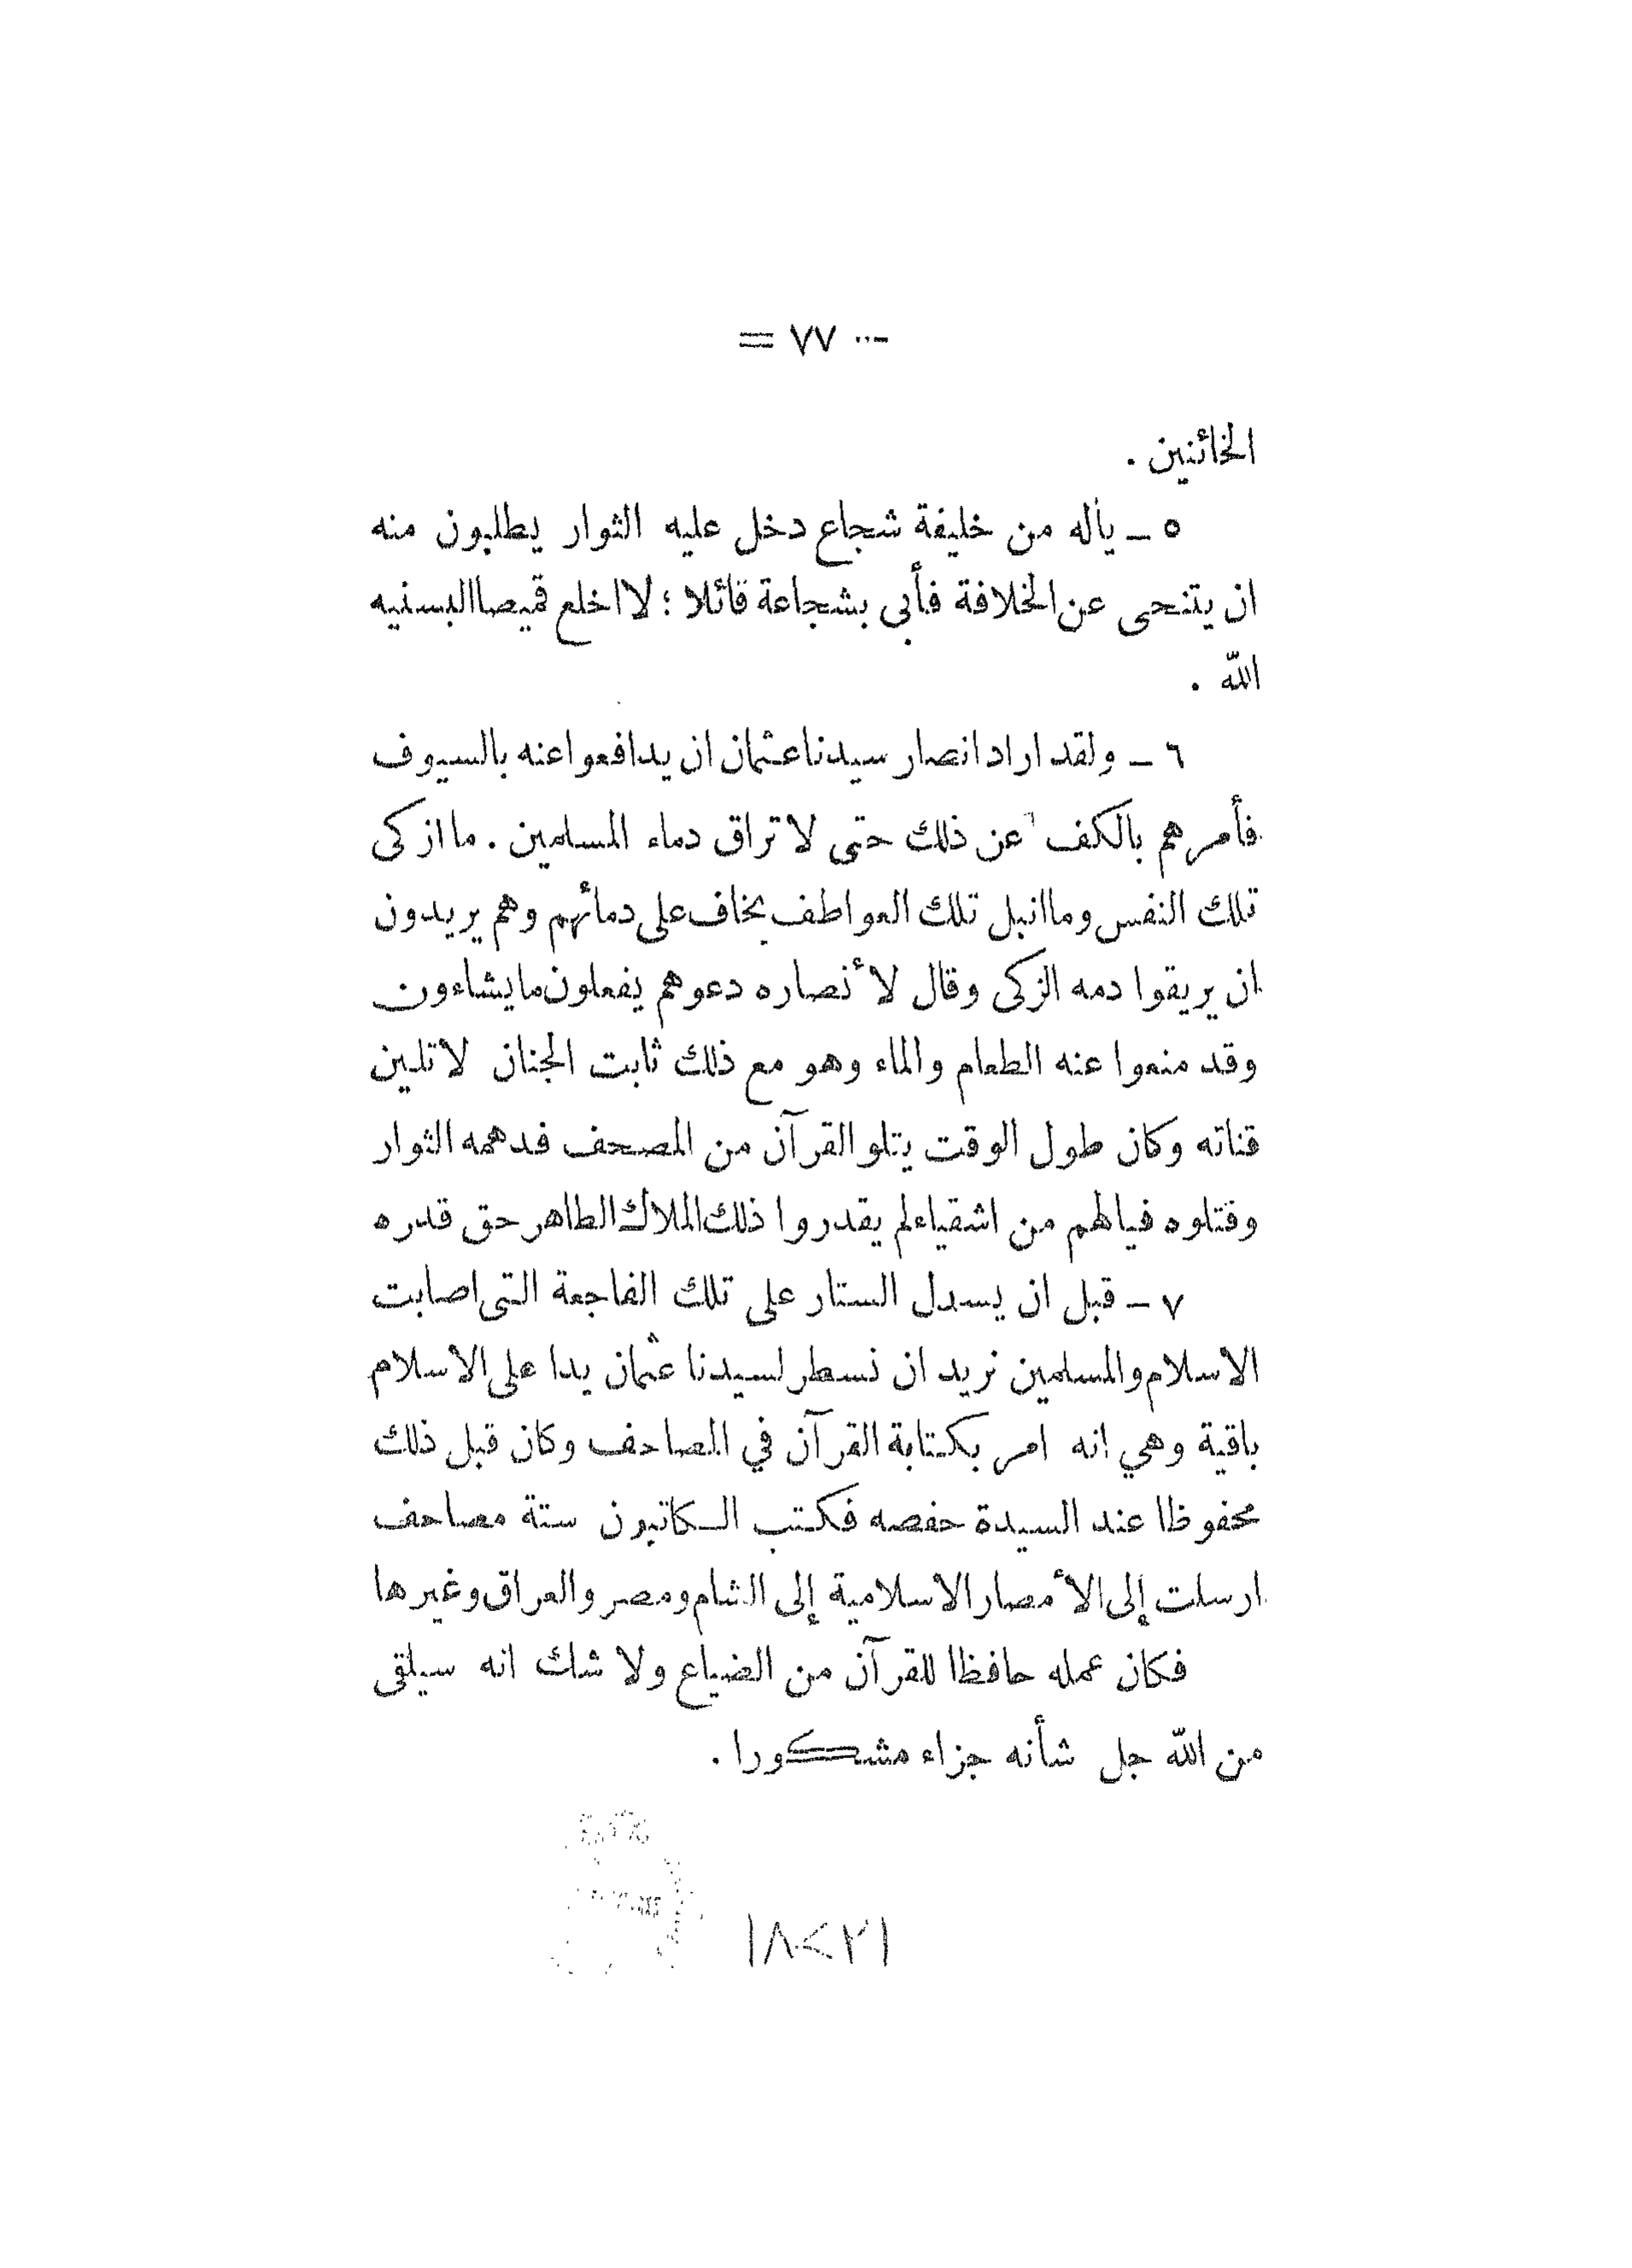 — ٧٧ =
الخائنين .
٥ — يأله من خليفة شجاع دخل عليه الثوار يطلبون منه
ان يتنحى عن الخلافة فأبى بشجاعة قائلا ؛ لا اخلع قميصا البسنيه
الله .
٦ — ولقد اراد انصار سيدنا عثمان ان يدافعوا عنه بالسيوف
فأمرهم بالكف عن ذلك حتى لا تراق دماء المسلمين . ما ازكى
تلك النفس وما انبل تلك العواطف يخاف على دمائهم وهم يريدون
ان يريقوا دمه الزكى وقال لأنصاره دعوهم يفعلون ما يشاءون
وقد منعوا عنه الطعام والماء وهو مع ذلك ثابت الجنان لا تلين
قناته وكان طول الوقت يتلو القرآن من المصحف فدهمه الثوار
وقتلوه فيالهم من اشقياء لم يقدروا ذلك الملاك الطاهر حق قدره
٧ — قبل ان يسدل الستار على تلك الفاجعة التى اصابت
الاسلام والمسلمين نريد ان نسطر لسيدنا عثمان يدا على الاسلام
باقية وهي انه امر بكتابة القرآن في المصاحف وكان قبل ذلك
محفوظا عند السيدة حفصه فكتب الكاتبون ستة مصاحف
ارسلت إلى الأمصار الاسلامية إلى الشام ومصر والعراق وغيرها
فكان عمله حافظا للقرآن من الضياع ولا شك انه سيلقى
من الله جل شأنه جزاء مشكورا .